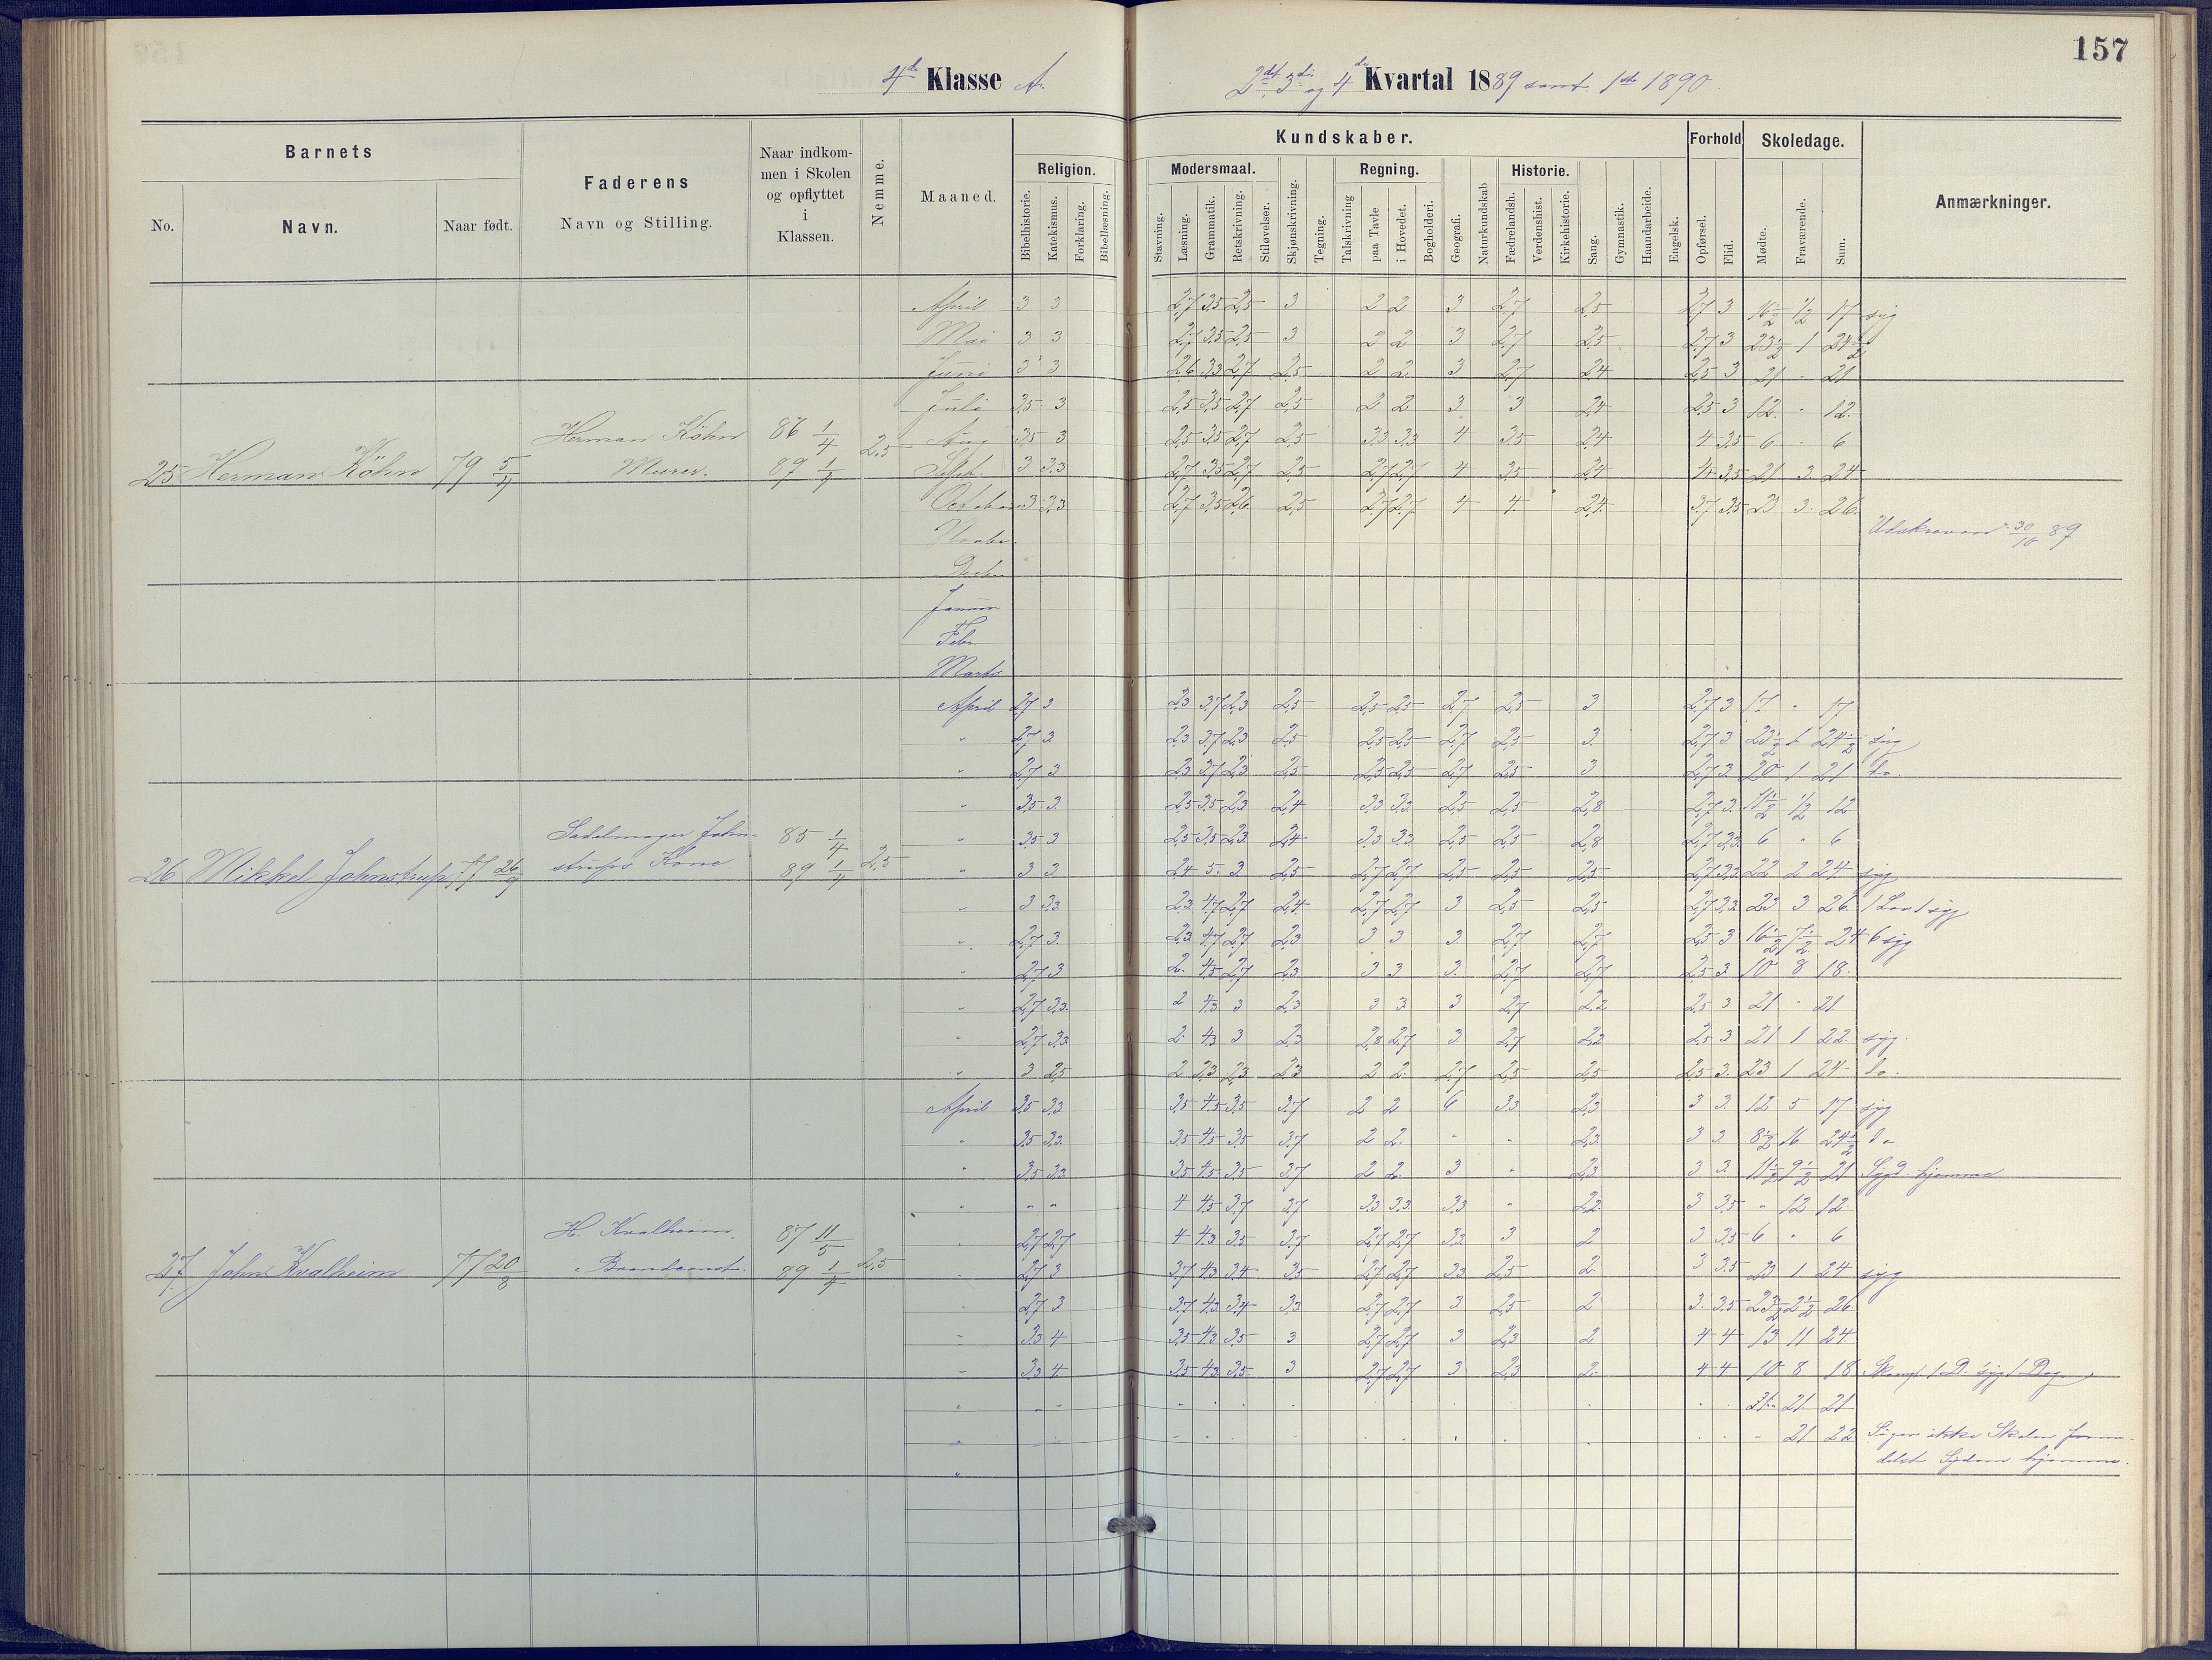 157
4de Klasse A.
2det 3die og 4de Kvartal 1889 samt 1ste 1890.
Barnets
No.
Navn.
Naar født.
Faderens
Navn og Stilling.
Naar indkom-
men i Skolen
og opflyttet
i
Klassen.
Nemme.
Maaned.
Kundskaber.
Religion.
Bibelhistorie.
Katekismus.
Forklaring.
Bibellæsning.
Modersmaal.
Stavning.
Læsning.
Grammatik.
Retskrivning.
Stiløvelser.
Skjønskrivning.
Tegning.
Regning.
Talskrivning
paa Tavle
i Hovedet.
Bogholderi.
Geografi.
Naturkundskab
Historie.
Fædrelandsh.
Verdenshist.
Kirkehistorie.
Sang.
Gymnastik.
Haandarbeide.
Engelsk.
Forhold
Opførsel.
Flid.
Skoledage.
Mødte.
Fraværende.
Sum.
Anmærkninger.
April 3 3 2,7 3,5 2,5 3 2 2 3 2,7 2,5 2,7 3 16½ ½ 17 syg
Mai 3 3 2,7 3,5 2,5 3 2 2 3 2,7 2,5 2,7 3 23½ 1 24½
Juni 3 3 2,6 3,3 2,7 2,5 2 2 3 2,7 2,4 2,5 3 21 " 21
Juli 3,5 3 2,5 3,5 2,7 2,5 2 2 3 3 2,4 2,5 3 12 " 12
Herman Köhn 86 1/4 2,5 Aug 3,5 3 2,5 3,5 2,7 2,5 3,3 3,3 4 3,5 2,4 4 3,5 6 " 6
25 Herman Köhn 79 5/4 Murer. 89 1/4 Sept. 3 3,3 2,7 3,5 2,7 2,5 2,7 2,7 4 3,5 2,4 4 3,5 21 3 24
October 3 3,3 2,7 3,5 2,6 2,5 2,7 2,7 4 4 2,4 3,7 3,5 23 3 26
Novbr. 30/10 89
Decbr
Januar
Febr.
Marts
April 2,7 3 2,3 3,7 2,3 2,5 2,5 2,5 2,7 2,5 3 2,7 3 17 " 17
" 2,7 3 2,3 3,7 2,3 2,5 2,5 2,5 2,7 2,5 3 2,7 3 23½ 1 24½ syg
" 2,7 3 2,3 3,7 2,3 2,5 2,5 2,5 2,7 2,5 3 2,7 3 20 1 21 do.
" 3,5 3 2,5 3,5 2,3 2,4 3,3 3,3 2,5 2,5 2,8 2,7 3 11½ ½ 12
Sadelmager John- 85 1/4 " 3,5 3 2,5 3,5 2,3 2,4 3,3 3,3 2,5 2,5 2,8 2,7 3,3 6 " 6
26 Mikkel Johnstrup 77 26/9 strups Kone 89 1/4 2,5 " 3 3 2,4 5 3 2,5 2,7 2,7 2,5 2,5 2,5 2,7 3,3 22 2 24 syg
" 3 3,3 2,3 4,7 2,7 2,4 2,7 2,7 3 2,5 2,5 2,7 3,3 23 3 26 1 Lov 1 syg
" 2,7 3 2,3 4,7 2,7 2,3 3 3 3 2,7 2,7 2,5 3 16½ 7½ 24 6 syg
" 2,7 3 2 4,5 2,7 2,3 3 3 3 2,7 2,7 2,5 3 10 8 18
" 2,7 3,3 2 4,3 3 2,3 3 3 3 2,7 2,2 2,5 3 21 " 21
" 2,7 3,3 2 4,3 3 2,3 2,8 2,7 3 2,7 2,2 2,5 3 21 1 22 syg.
" 3 2,5 2 2,3 2,3 2,3 2 2 2,7 2,5 2,5 2,5 3 23 1 24 do.
April 3,5 3,3 3,5 4,5 3,5 3,7 2 2 6 3,3 2,3 3 3 12 5 17 syg
" 3,5 3,3 3,5 4,5 3,5 3,7 2 2 " " 2,3 3 3 8½ 16 24½ do
" 3,5 3,3 3,5 4,5 3,5 3,7 2 2 3 " 2,3 3 3 11½ 9½ 21 Sygd. hjemme
" " " 4 4,5 3,7 3,7 3,3 3,3 3,3 " 2,2 3 3,5 " 12 12
H. Kvalheim, 87 11/5 " 2,7 2,7 4 4,3 3,5 3,7 2,7 2,7 3,3 3 2 3 3,5 6 " 6
27 John Kvalheim 77 20/8 89 1/4 2,5 " 2,7 3 3,7 4,3 3,4 3,5 2,7 2,7 3,3 2,5 2 3 3,5 23 1 24 syg
" 2,7 3 3,7 4,3 3,4 3,3 2,7 2,7 3 2,5 2 3 3,5 23½ 2½ 26
" 3,3 4 3,5 4,3 3,5 3 2,7 2,7 3 2,3 2 4 4 13 11 24
" 3,3 4 3,5 4,3 3,5 3 2,7 2,7 3 2,3 2 4 4 10 8 18 1 D. syg 1 Dag
" " " 21 21
" " " 21 22 Søger ikke Skolen forme-
delst Sygdom hjemme.